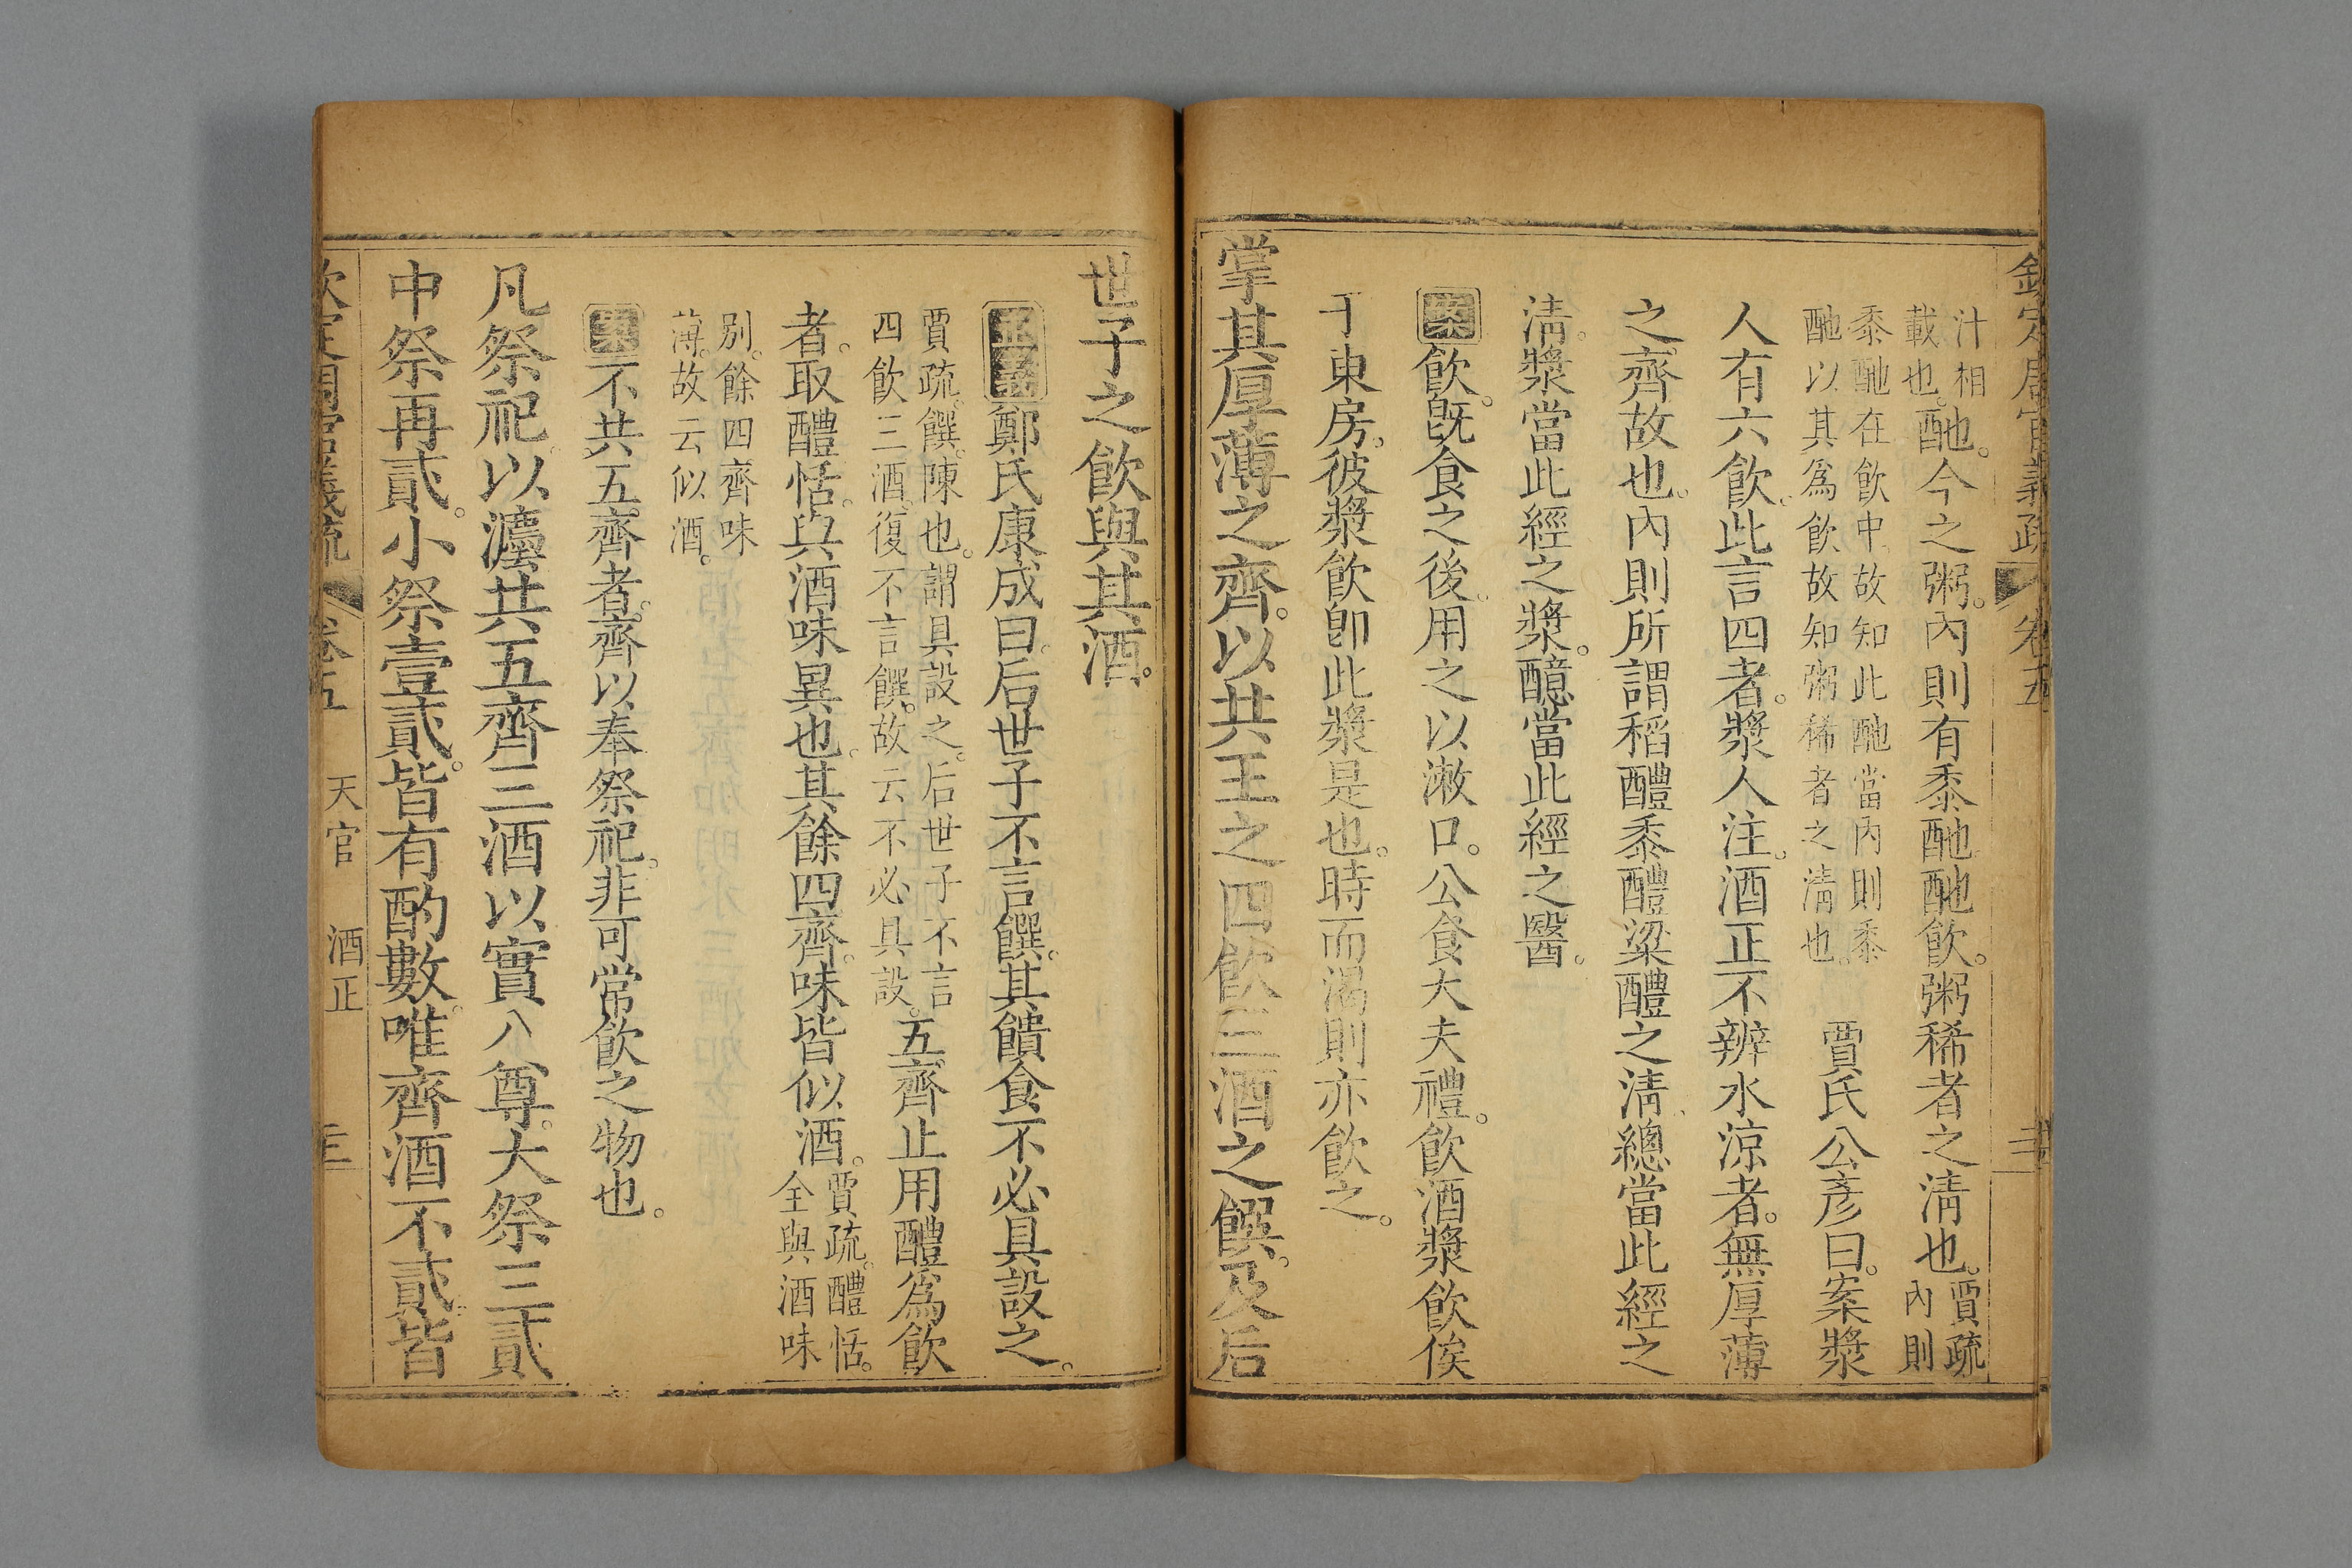 欽定周官義疏 卷五
汁相
載也。酏。今之粥。內則有黍酏酏飲。粥稀者之淸也。賈疏
內則
黍酏在飲中故知此酏當內則黍
酏以其爲飲故知粥稀者之淸也。 賈氏公彥曰。案漿
人有六飲。此言四者。漿人注。酒正不辨水涼者。無厚薄
之齊故也。內則所謂稻醴黍醴粱醴之淸。總當此經之
淸。漿當此經之漿。醷當此經之醫。
案飲。旣食之後。用之以漱口。公食大夫禮。飲酒漿飲俟
于東房。彼漿飲卽此漿是也。時而渴則亦飲之。
掌其厚薄之齊。以共王之四飲三酒之饌。及后
世子之飲與其酒。
正義鄭氏康成曰。后世子不言饌。其饋食不必具設之。
賈疏。饌。陳也。謂具設之。后世子不言
四飲三酒。復不言饌。故云不必具設。五齊止用醴爲飲
者。取醴恬。與酒味異也。其餘四齊。味皆似酒。賈疏。醴恬。
全與酒味
別。餘四齊味
薄。故云似酒。
案不共五齊者。齊以奉祭祀。非可常飲之物也。
凡祭祀以灋共五齊三酒以實八尊。大祭三貳
中祭再貳。小祭壹貳。皆有酌數。唯齊酒不貳。皆
欽定周官義疏 卷五 天官 酒正